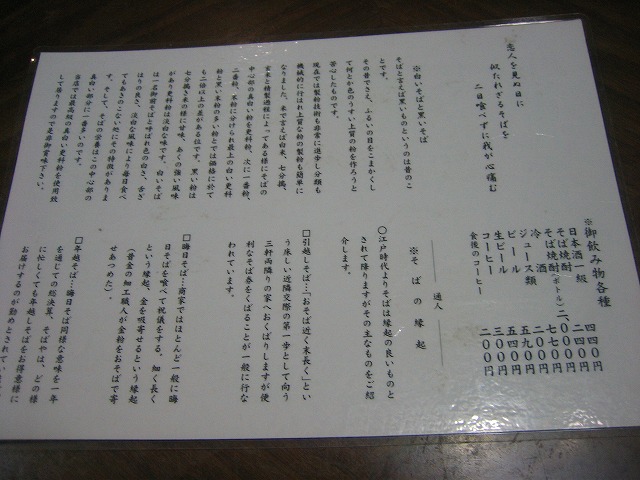 恋人を見ぬ日に
似たれざるそばを
二日喰べずに我が心痛む
※白いそばと黒いそば
そばと言えば黒いものというのは昔のこ
とです。
その昔でさえ、ふるいの目をこまかくし
て何とか色のうすい上質の粉を作ろうと
苦心したものです。
現在では製粉技術も非常に進歩し分類も
機械的に行われ上質な粉の製粉も簡単に
なりました。米で言えば白米、七分搗、
玄米と精製過程によってある様にそばの
中心部の真白い粉を更科粉、次に一番粉、
二番粉、末粉に分けられ最上の白い更科
粉と黒い末粉の多い粉とでは価格に於て
も二倍以上の差がある位です。黒い粉は
七分搗き米の様に甘味、あくの強い風味
があり更科粉は淡白な味です。白いそば
は一名御前そばと呼ばれ色の白さ、舌ざ
はりの良さ、淡白な風味により毎日食べ
てもあきのこない処にその特徴がありま
す。そして、そばの栄養はこの中心部の
真白い部分に一番多いのです。
当店では最高級の真白い更科粉を使用致
して居りますので是非御賞味下さい。
※御飲み物各種
日本酒一級 四四〇円
そば焼酎 二四〇円
そば焼酎(ボトル) 二、〇〇〇円
冷酒 七七〇円
ジュース類 二〇〇円
ビール 五九〇円
生ビール 五四〇円
コーヒー 三〇〇円
食後のコーヒー 二〇〇円
通人
※そばの縁起
〇江戸時代よりそばは縁起の良いものと
されて降りますがその主なものをご紹
介します。
□引越しそば…「おそば近く末長く」とい
う床しい近隣交際の第一歩として向う
三軒両隣りの家へおくばりしますが便
利なそば券をくばることが一般に行な
われています。
□晦日そば…商家ではほとんど一般に晦
日そばを喰べて祝儀をする。細く長く
という縁起、金を吸寄せるという縁起
(昔金の細工職人が金粉をおそばで寄
せあつめた)。
□年越そば…晦日そば同様な意味を一年
を通じての総決算、そばやは、どの様
に忙しくても年越しそばをお得意様に
お届けするのが勤めとされてい